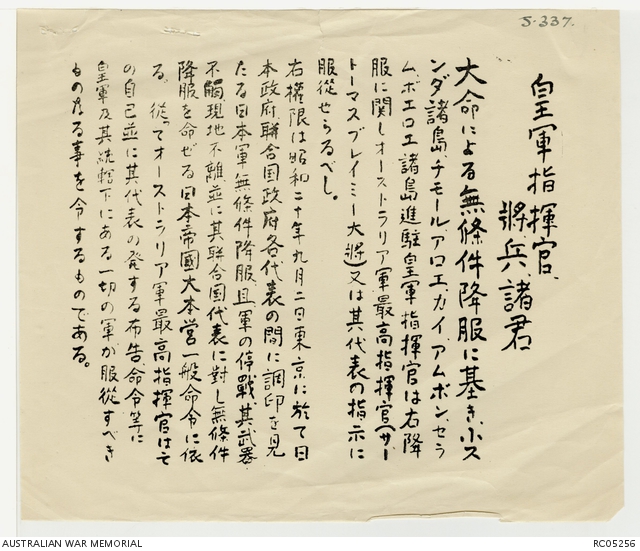 S-337.
皇軍指揮官、
將兵諸君
大命による無條件降服に基き、ボス
ンダ諸島、チモール、アロエ、カイ、アムボン、セラ
ム、ボエロエ諸島進駐皇軍指揮官は右降
服に関しオーストラリア軍最高指揮官(サー
トーマスブレイミー大將)又は其代表の指示に
服從せらるべし。
右權限は昭和二十年九月二日東京に於て日
本政府聯合国政府各代表の間に調印を見
たる日本軍無條件降服、且軍の停戰、其武器
不觸、現地不離並に其聯合国代表に對し無條件
降服を命ぜる日本帝國大本営一般命令に依
る。從つてオーストラリア軍最高指揮官はそ
の自己並に其代表の発する布告命令等に
皇軍及其統轄下にある一切の軍が服從すべき
ものなる事を令するものである。
AUSTRALIAN WAR MEMORIAL
RC05256